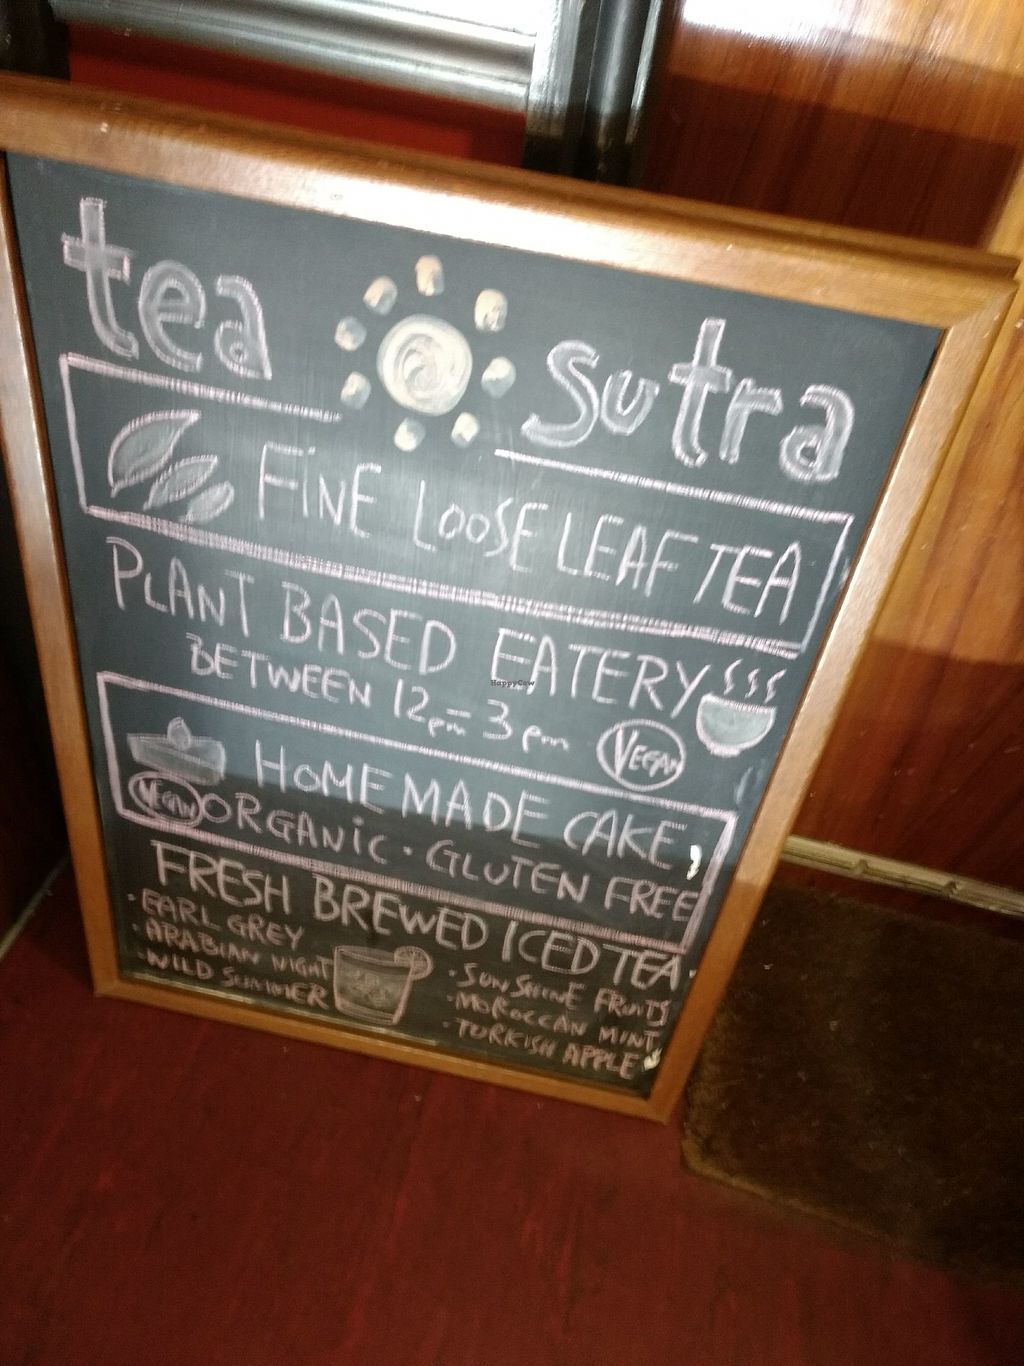 tea sutra
FiNE LOOSE LEAF TEA
PLANT BASED EATERY
BETWEEN 12pm - 3pm
VEGAN
HOME MADE CAKE,
VEGAN
ORGANiC · GLUTEN FREE
FRESH BREWED ICED TEA·
· EARL GREY
· ARABIAN NIGHT
· WILD SUMMER
· SUN SHINE FRUITS
· MOROCCAN MINT
· TURKISH APPLE
HappyCow